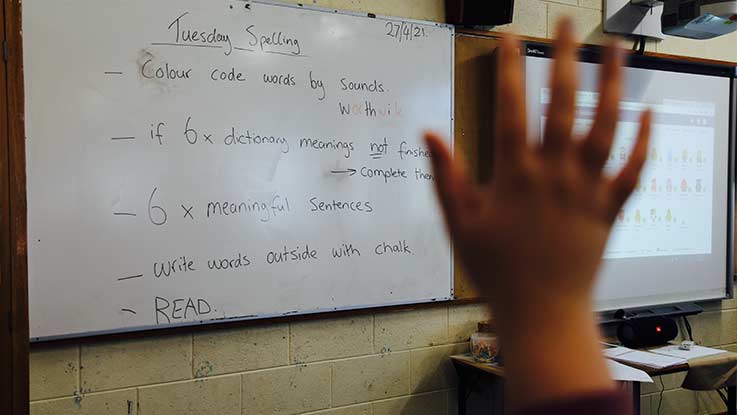 Tuesday Spelling
27/4/21.
- Colour code words by sounds.
- if 6x dictionary meanings not finished
→ complete them
- 6 x meaningful sentences
- write words outside with chalk.
- READ.